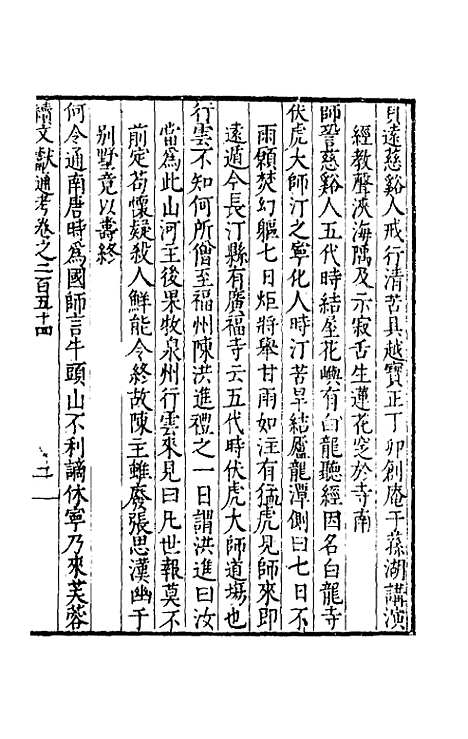 貝遠慈谿人戒行清苦具越寶正丁卯創庵于蓀湖講演
經教聲浹海隅及示寂舌生蓮花窆於寺南
師訔慈谿人五代時結屋花嶼有白龍聽經因名白龍寺
伏虎大師汀之寧化人時汀苦旱結廬龍潭側曰七日不
雨願焚幻軀七日炬將舉甘雨如注有猛虎見師來即
遠遁今長汀縣有廣福寺云五代時伏虎大師道塲也
行雲不知何所僧至福州陳洪進禮之一日謂洪進曰汝
當為此山河主後果牧泉州行雲來見曰凡世報莫不
前定苟懷疑殺人鮮能令終故陳主雖廢張思漢幽于
別墅竟以壽終
何令通南唐時爲國師言牛頭山不利謫休寧乃來芙蓉
續文獻通考卷之二百五十四